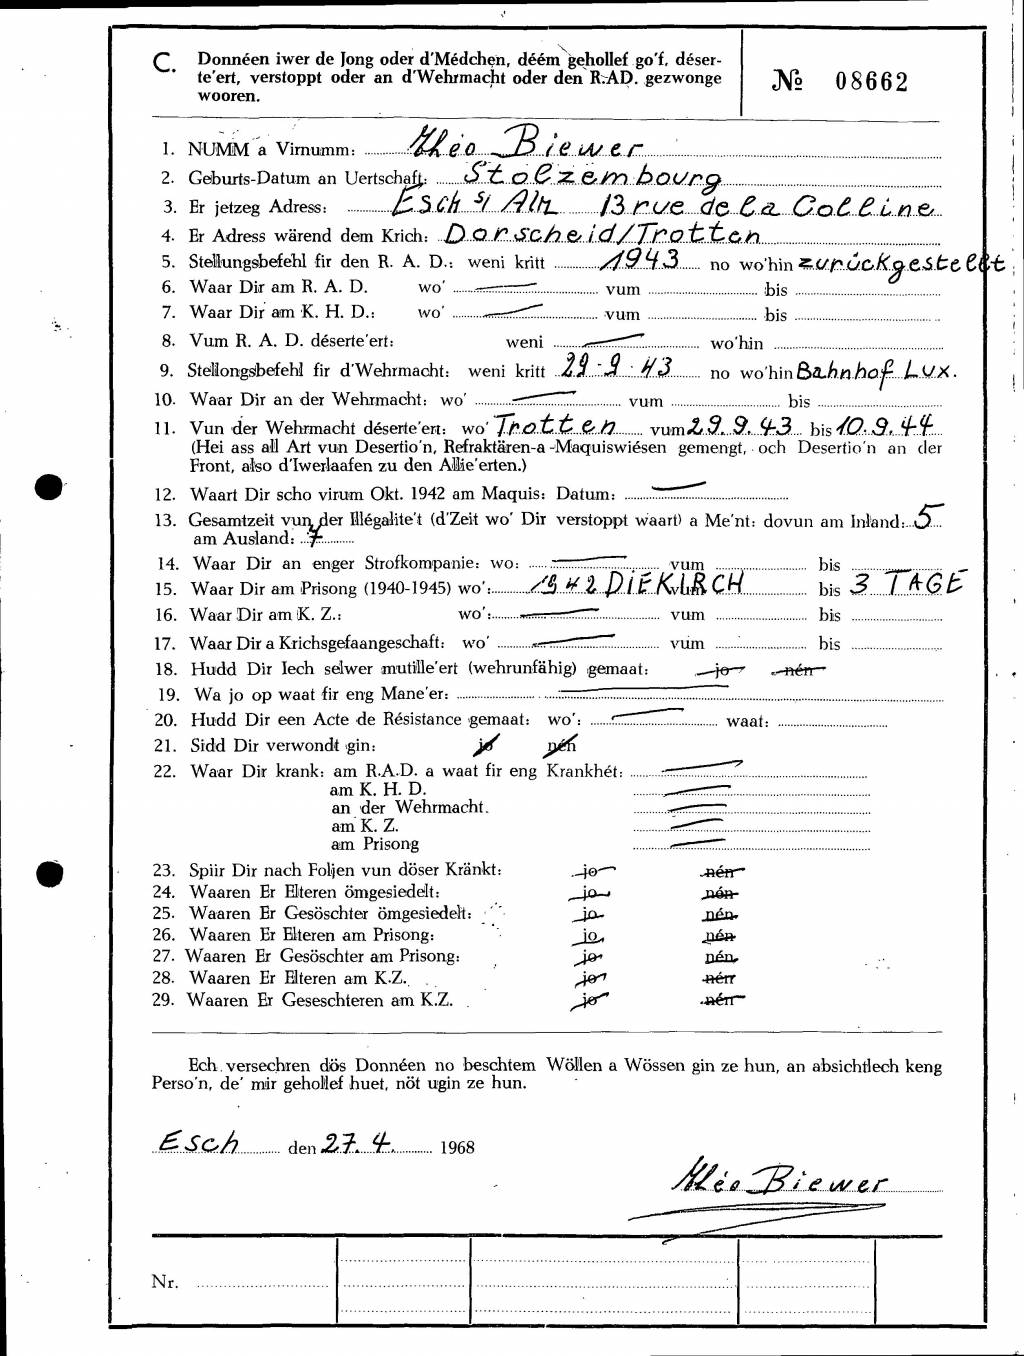 C. Donnéen iwer de Jong oder d'Médchen, déém gehollef go'f, déser-
te'ert, verstoppt oder an d'Wehrmacht oder den R.AD. gezwonge
wooren.
№ 08662
1. NUMM a Virnumm: Théo Biewer
2. Geburts-Datum an Uertschaft: Stolzembourg
3. Er jetzeg Adress: Esch s/ Alz 13 rue de la Colline
4. Er Adress wärend dem Krich: Dorscheid/Trotten
5. Stellungsbefehl fir den R. A. D.: weni kritt 1943 no wo'hin zurückgestellt
6. Waar Dir am R. A. D. wo' vum bis
7. Waar Dir am K. H. D.: wo' vum bis
8. Vum R. A. D. déserte'ert: weni wo'hin
9. Stellongsbefehl fir d'Wehrmacht: weni kritt 29.9.43 no wo'hin Bahnhof Lux.
10. Waar Dir an der Wehrmacht: wo' vum bis
11. Vun der Wehrmacht déserte'ert: wo' Trotten vum 29.9.43 bis 10.9.44
(Hei ass all Art vun Desertio'n, Refraktären-a-Maquiswiésen gemengt, och Desertio'n an der
Front, also d'Iwerlaafen zu den Allie'erten.)
12. Waart Dir scho virum Okt. 1942 am Maquis: Datum:
13. Gesamtzeit vun der Illégalite't (d'Zeit wo' Dir verstoppt waart) a Me'nt: dovun am Inland: 5
am Ausland: 7
14. Waar Dir an enger Strofkompanie: wo: vum bis
15. Waar Dir am Prisong (1940-1945) wo': 1942 DIEKIRCH vum bis 3 TAGE
16. Waar Dir am K. Z.: wo': vum bis
17. Waar Dir a Krichsgefaangeschaft: wo' vum bis
18. Hudd Dir Iech selwer mutille'ert (wehrunfähig) gemaat: jo nén
19. Wa jo op waat fir eng Mane'er:
20. Hudd Dir een Acte de Résistance gemaat: wo': waat:
21. Sidd Dir verwondt gin: jo nén
22. Waar Dir krank: am R.A.D. a waat fir eng Krankhét:
am K. H. D.
an der Wehrmacht.
am K. Z.
am Prisong
23. Spiir Dir nach Foljen vun döser Kränkt: jo nén
24. Waaren Er Elteren ömgesiedelt: jo nén
25. Waaren Er Gesöschter ömgesiedelt: jo nén
26. Waaren Er Elteren am Prisong: jo nén
27. Waaren Er Gesöschter am Prisong: jo nén
28. Waaren Er Elteren am K.Z. jo nén
29. Waaren Er Geseschteren am K.Z. jo nén
Ech versechren dös Donnéen no beschtem Wöllen a Wössen gin ze hun, an absichtlech keng
Perso'n, de' mir gehollef huet, nöt ugin ze hun.
Esch den 27.4. 1968
Théo Biewer
Nr.